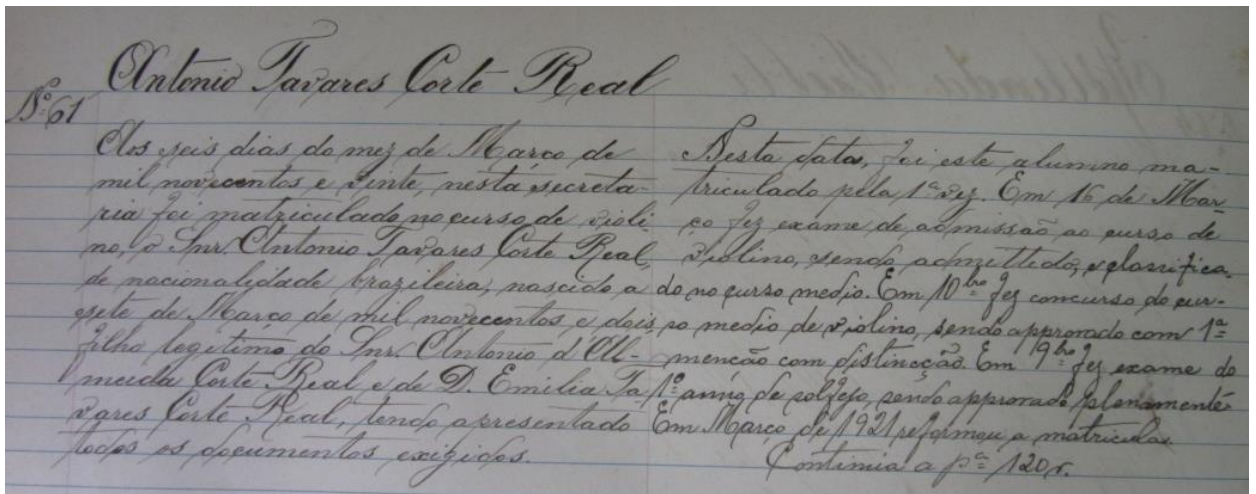 Antonio Tavares Corte Real
Nº 61
Aos seis dias do mez de Março de
mil novecentos e vinte, nesta secreta-
ria foi matriculado no curso de violi-
no, o Snr. Antonio Tavares Corte Real,
de nacionalidade brazileira, nascido a
sete de Março de mil novecentos e dois,
filho legitimo do Snr. Antonio d'Al-
meida Corte Real e de D. Emilia Ta-
vares Corte Real, tendo apresentado
todos os documentos exigidos.
Nesta data, foi este alumno ma-
triculado pela 1ª vez. Em 16 de Mar-
ço fez exame de admissão ao curso de
violino, sendo admittido, e classifica-
do no curso medio. Em 10bro fez concurso do cur-
so medio de violino, sendo approvado com 1ª
menção com distincção. Em 9bro fez exame do
1º anno de solfejo, sendo approvado plenamente
Em Março de 1921 reformou a matricula.
Continúa a pª 120 v.